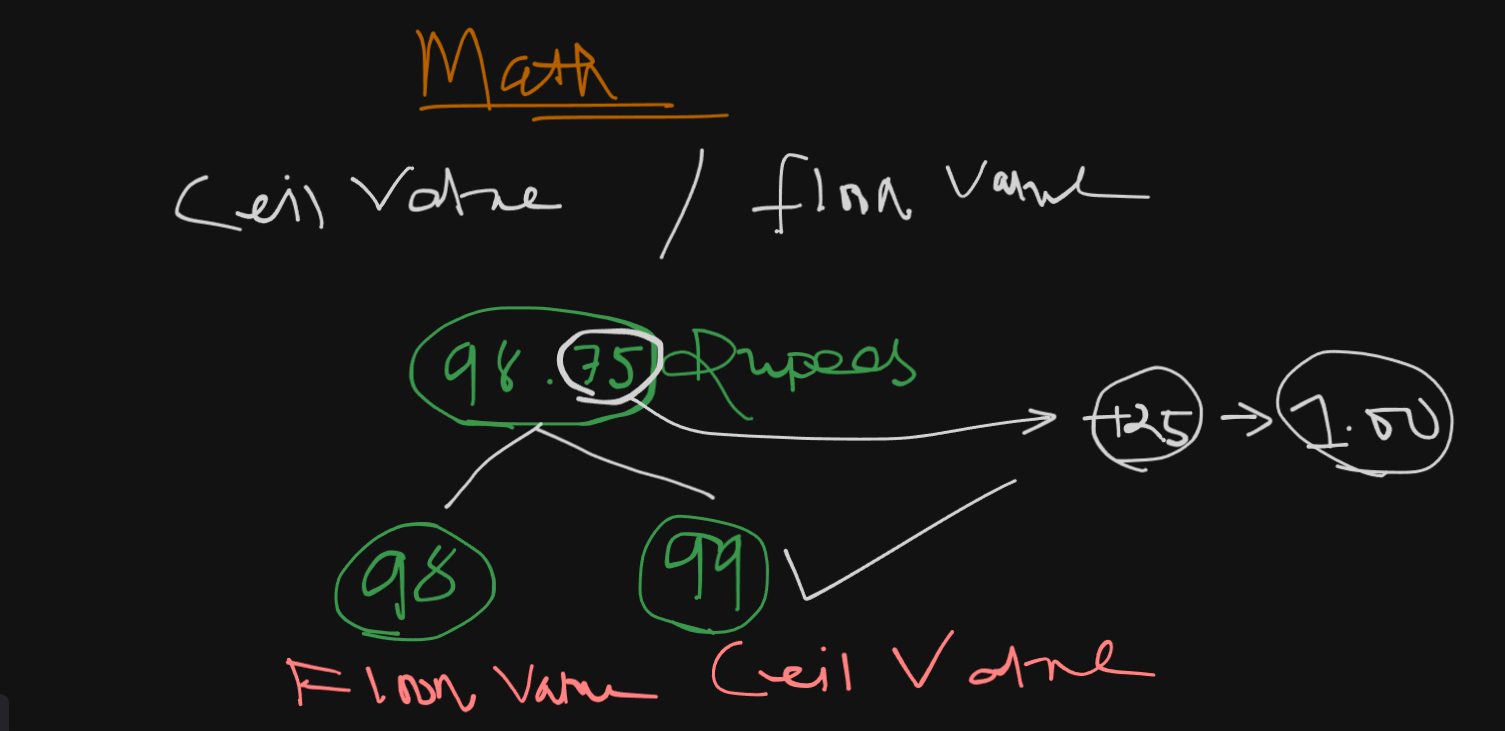 Math
Ceil Value / floor Value
98.75 Rupees
+25 → 1.00
98 99
Floor Value Ceil Value